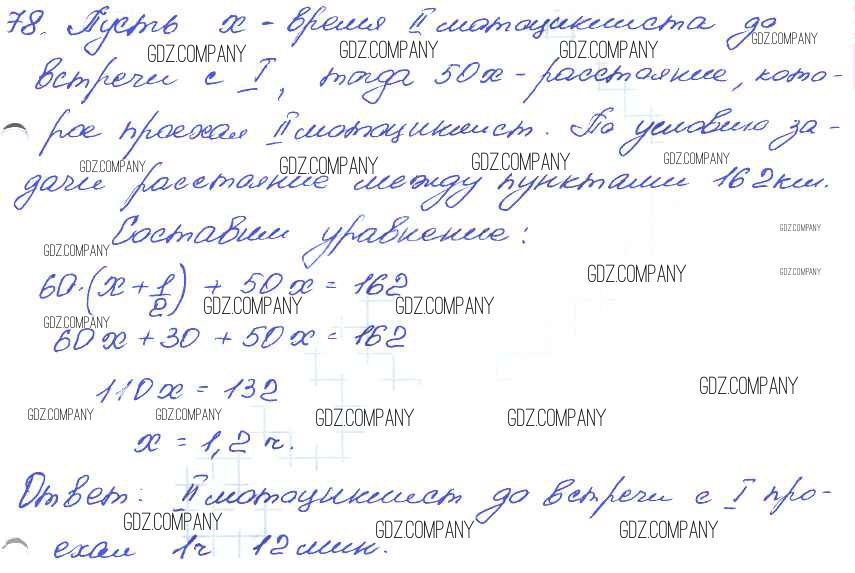 78. Пусть x - время II мотоциклиста до
GDZ.COMPANY GDZ.COMPANY GDZ.COMPANY GDZ.COMPANY
встречи с I, тогда 50x - расстояние, кото-
рое проехал II мотоциклист. По условию за-
GDZ.COMPANY GDZ.COMPANY GDZ.COMPANY GDZ.COMPANY
дачи расстояние между пунктами 162 км.
Составим уравнение:
GDZ.COMPANY GDZ.COMPANY
60·(x + 1/2) + 50x = 162
GDZ.COMPANY GDZ.COMPANY
GDZ.COMPANY GDZ.COMPANY GDZ.COMPANY
60x + 30 + 50x = 162
110x = 132
GDZ.COMPANY
GDZ.COMPANY GDZ.COMPANY GDZ.COMPANY GDZ.COMPANY
x = 1,2 ч.
Ответ: II мотоциклист до встречи с I про-
GDZ.COMPANY GDZ.COMPANY GDZ.COMPANY
ехал 1ч 12 мин.